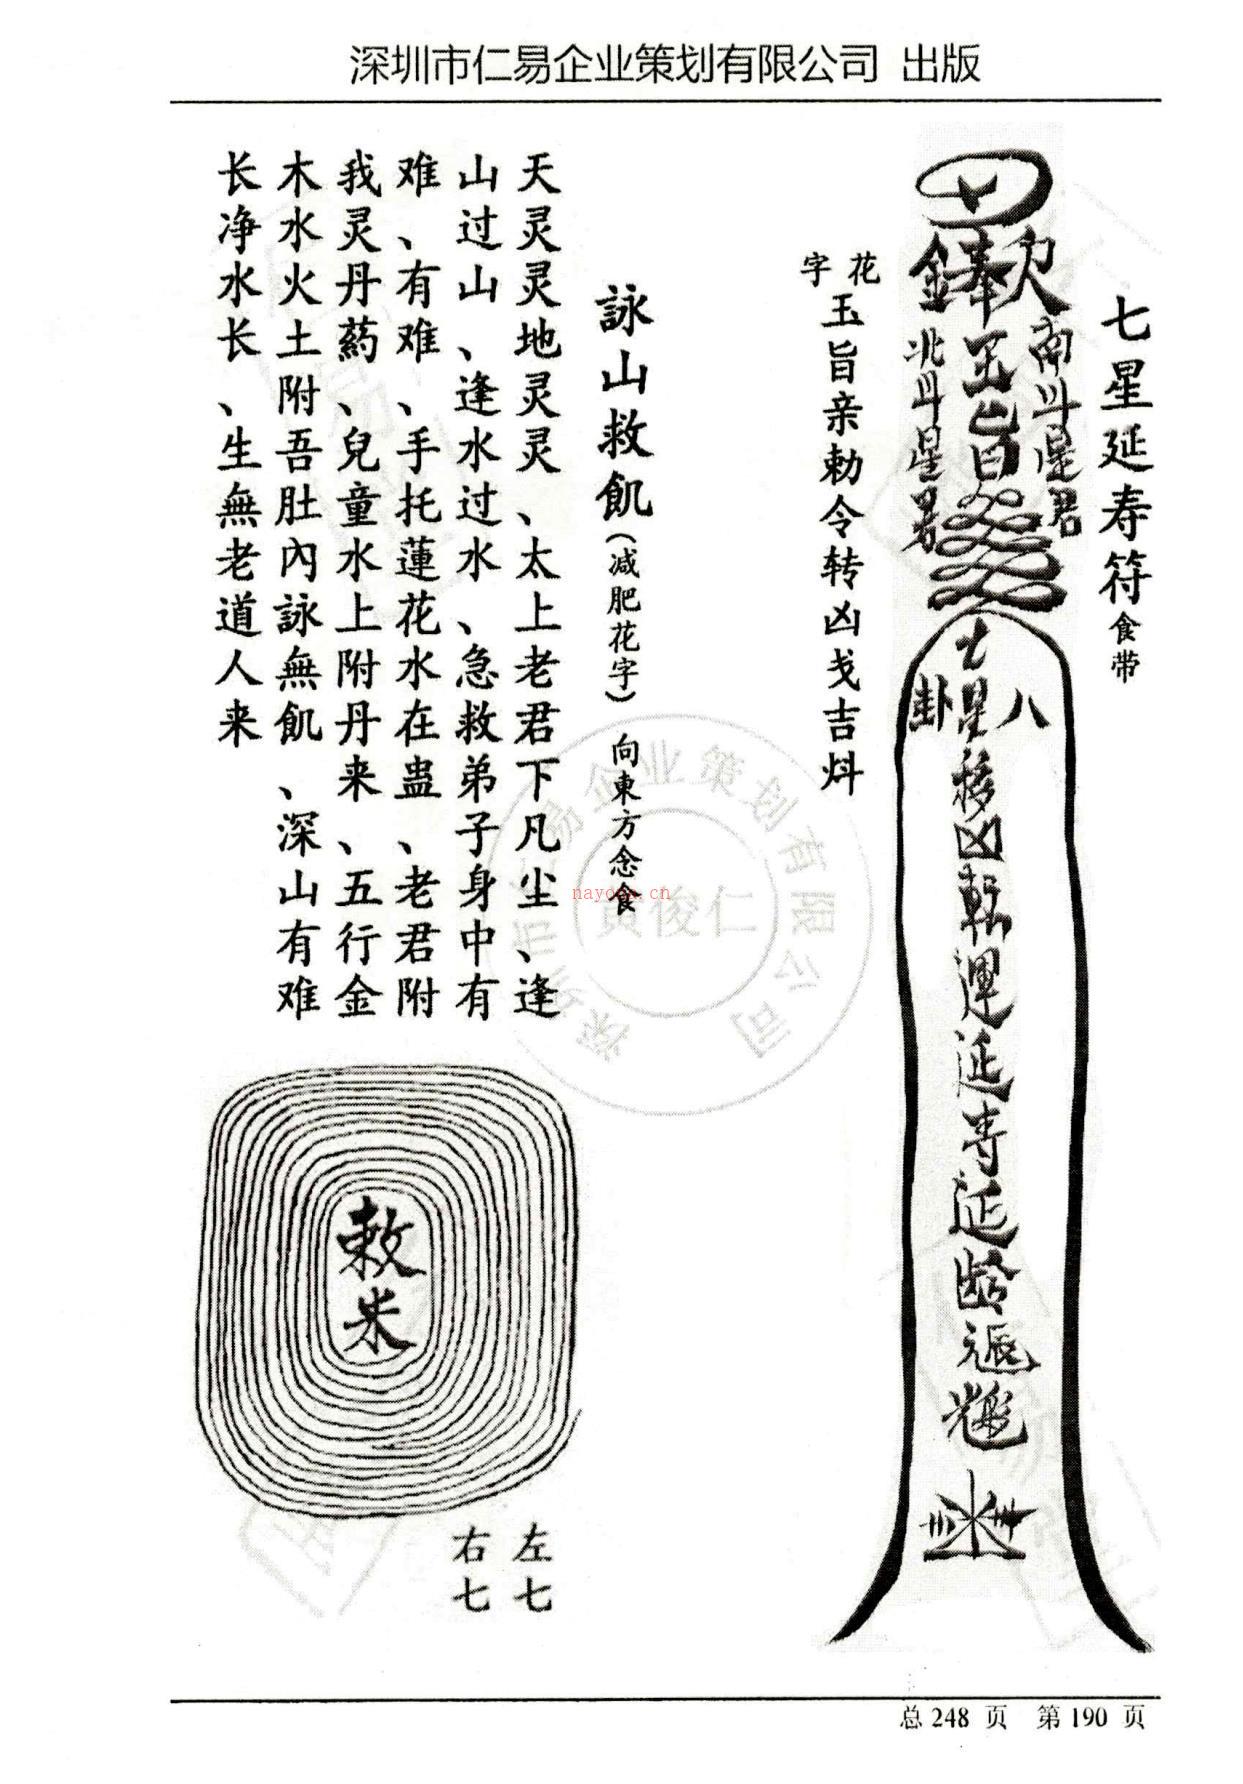 深圳市仁易企业策划有限公司 出版
七星延寿符食带
南斗星君
奉玉旨
北斗星君
八卦
七星移凶轉運延寿延龄
花字
玉旨亲勅令转凶戈吉炓
詠山救飢(减肥花字) 向東方念食
天灵灵地灵灵、太上老君下凡尘、逢
山过山、逢水过水、急救弟子身中有
难、有难、手托蓮花水在蛊、老君附
我灵丹药、兒童水上附丹来、五行金
木水火土附吾肚內詠無飢、深山有难
长净水长、生無老道人来
敕米
左七
右七
深圳市仁易企业策划有限公司
黄俊仁
nayona.cn
总 248 页 第 190 页